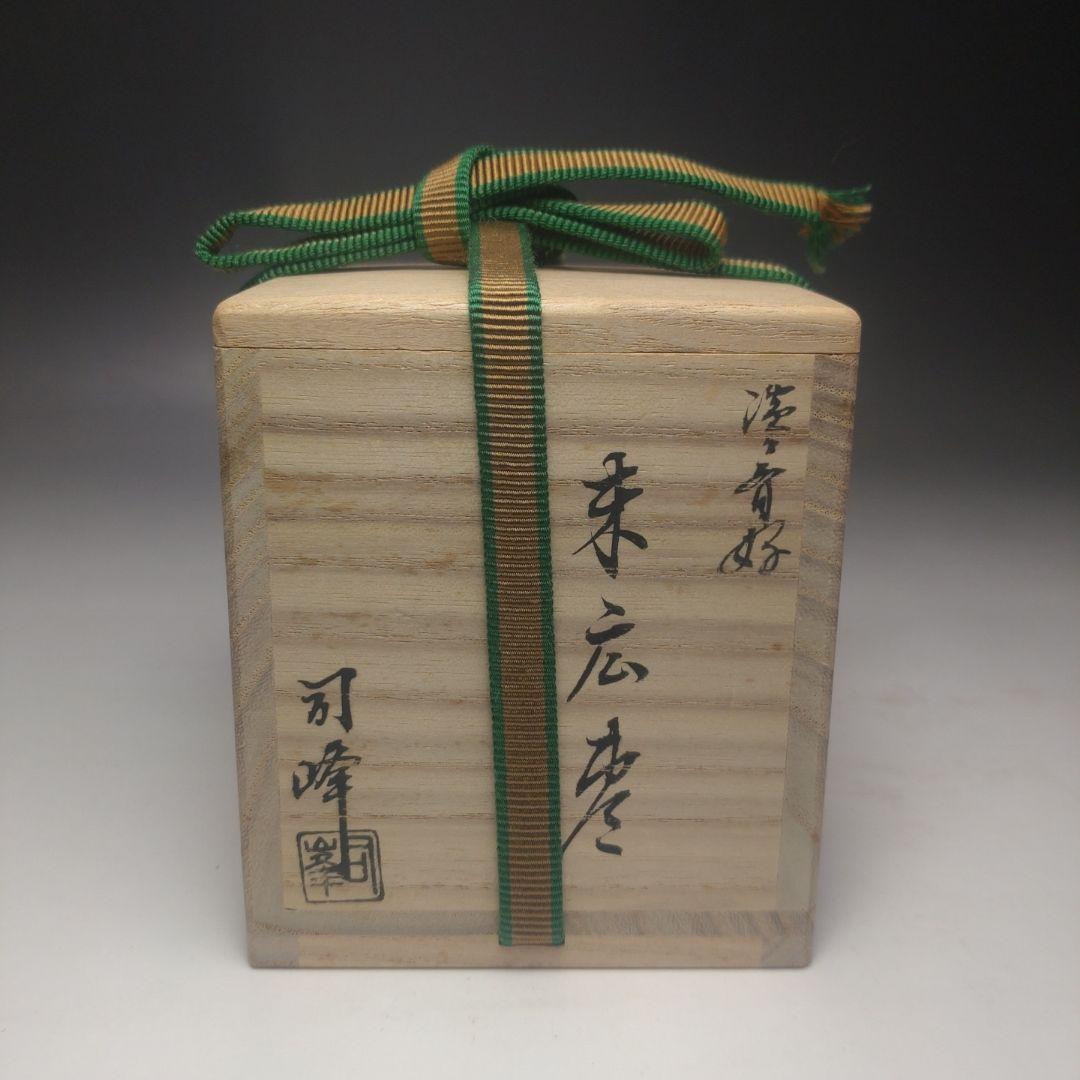 淡々斎好
末広棗
司峰
司峰